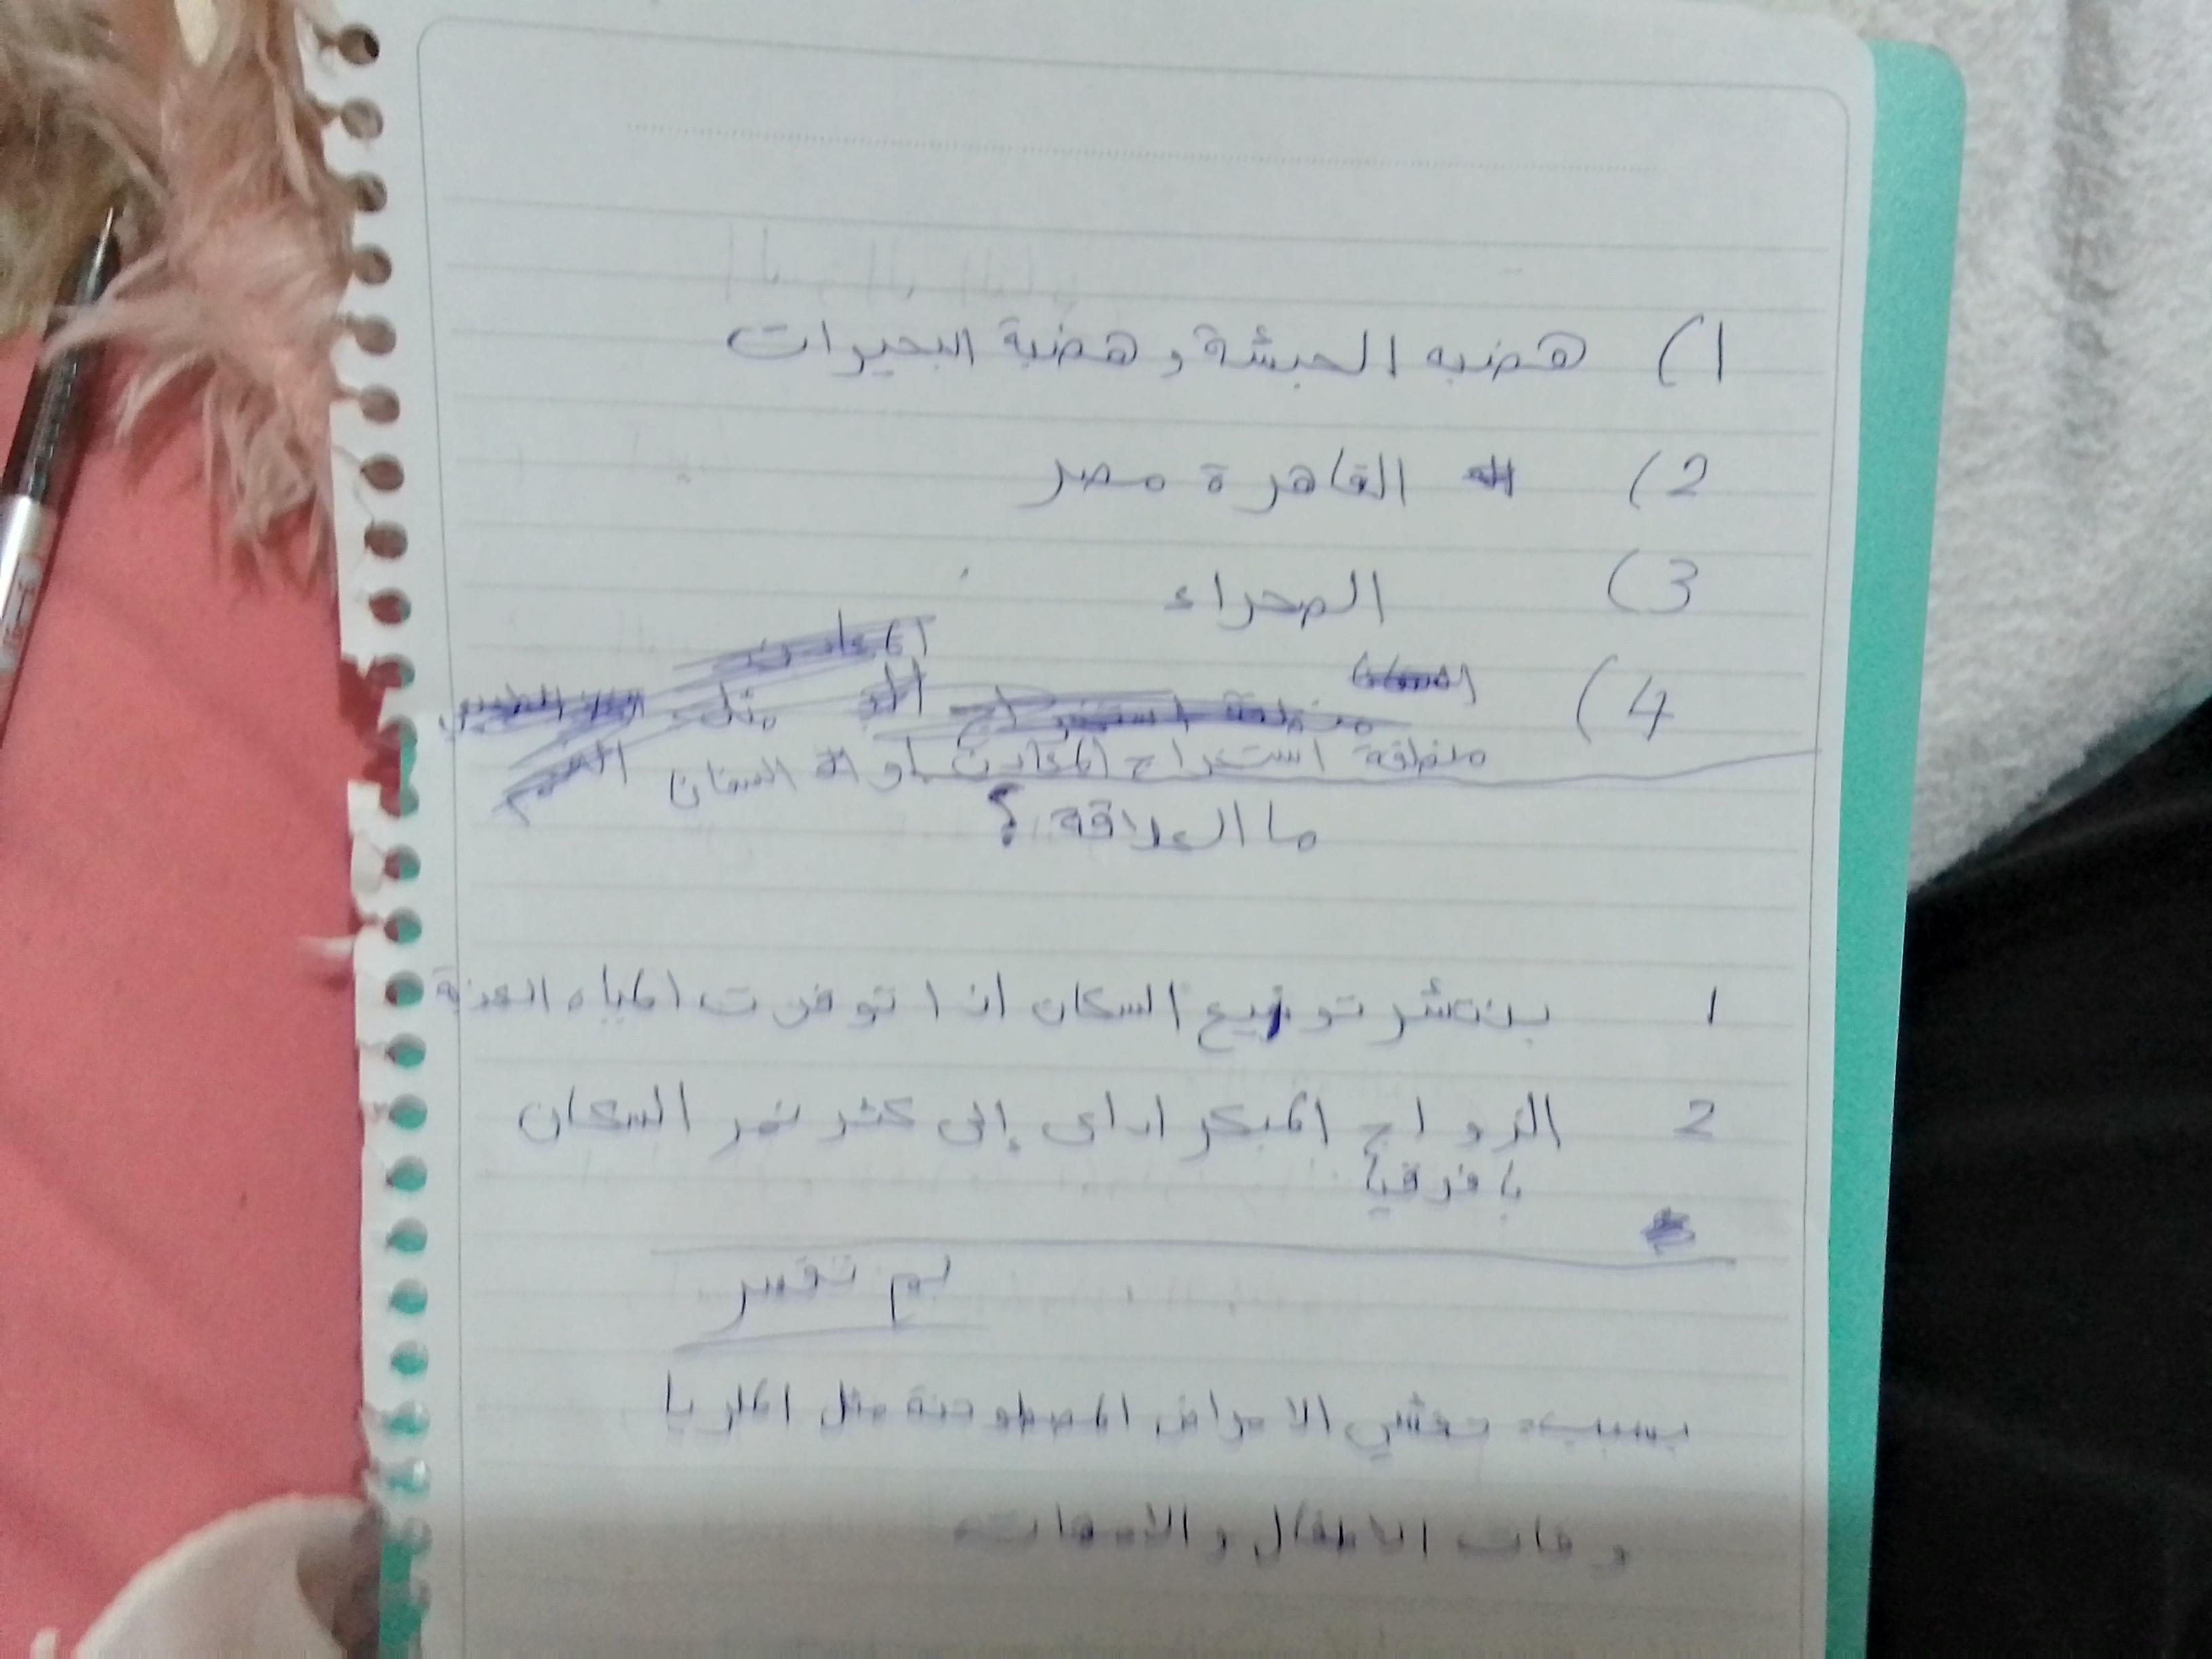 1) هضبه الحبشة و هضبة البحيرات
2) القاهرة مصر
3) الصحراء
4)
منطقة استخراج المعادن السكان
ما العلاقة؟
1 ينتشر توزيع السكان اذا توفرت المياه العذبة
2 الزواج المبكر اداى إلى كثر نمر السكان
بافرقيا
بم تفسر
بسبب تفشي الامراض المصطوحنة مثل الملريا
وفات الاطفال و الامهات